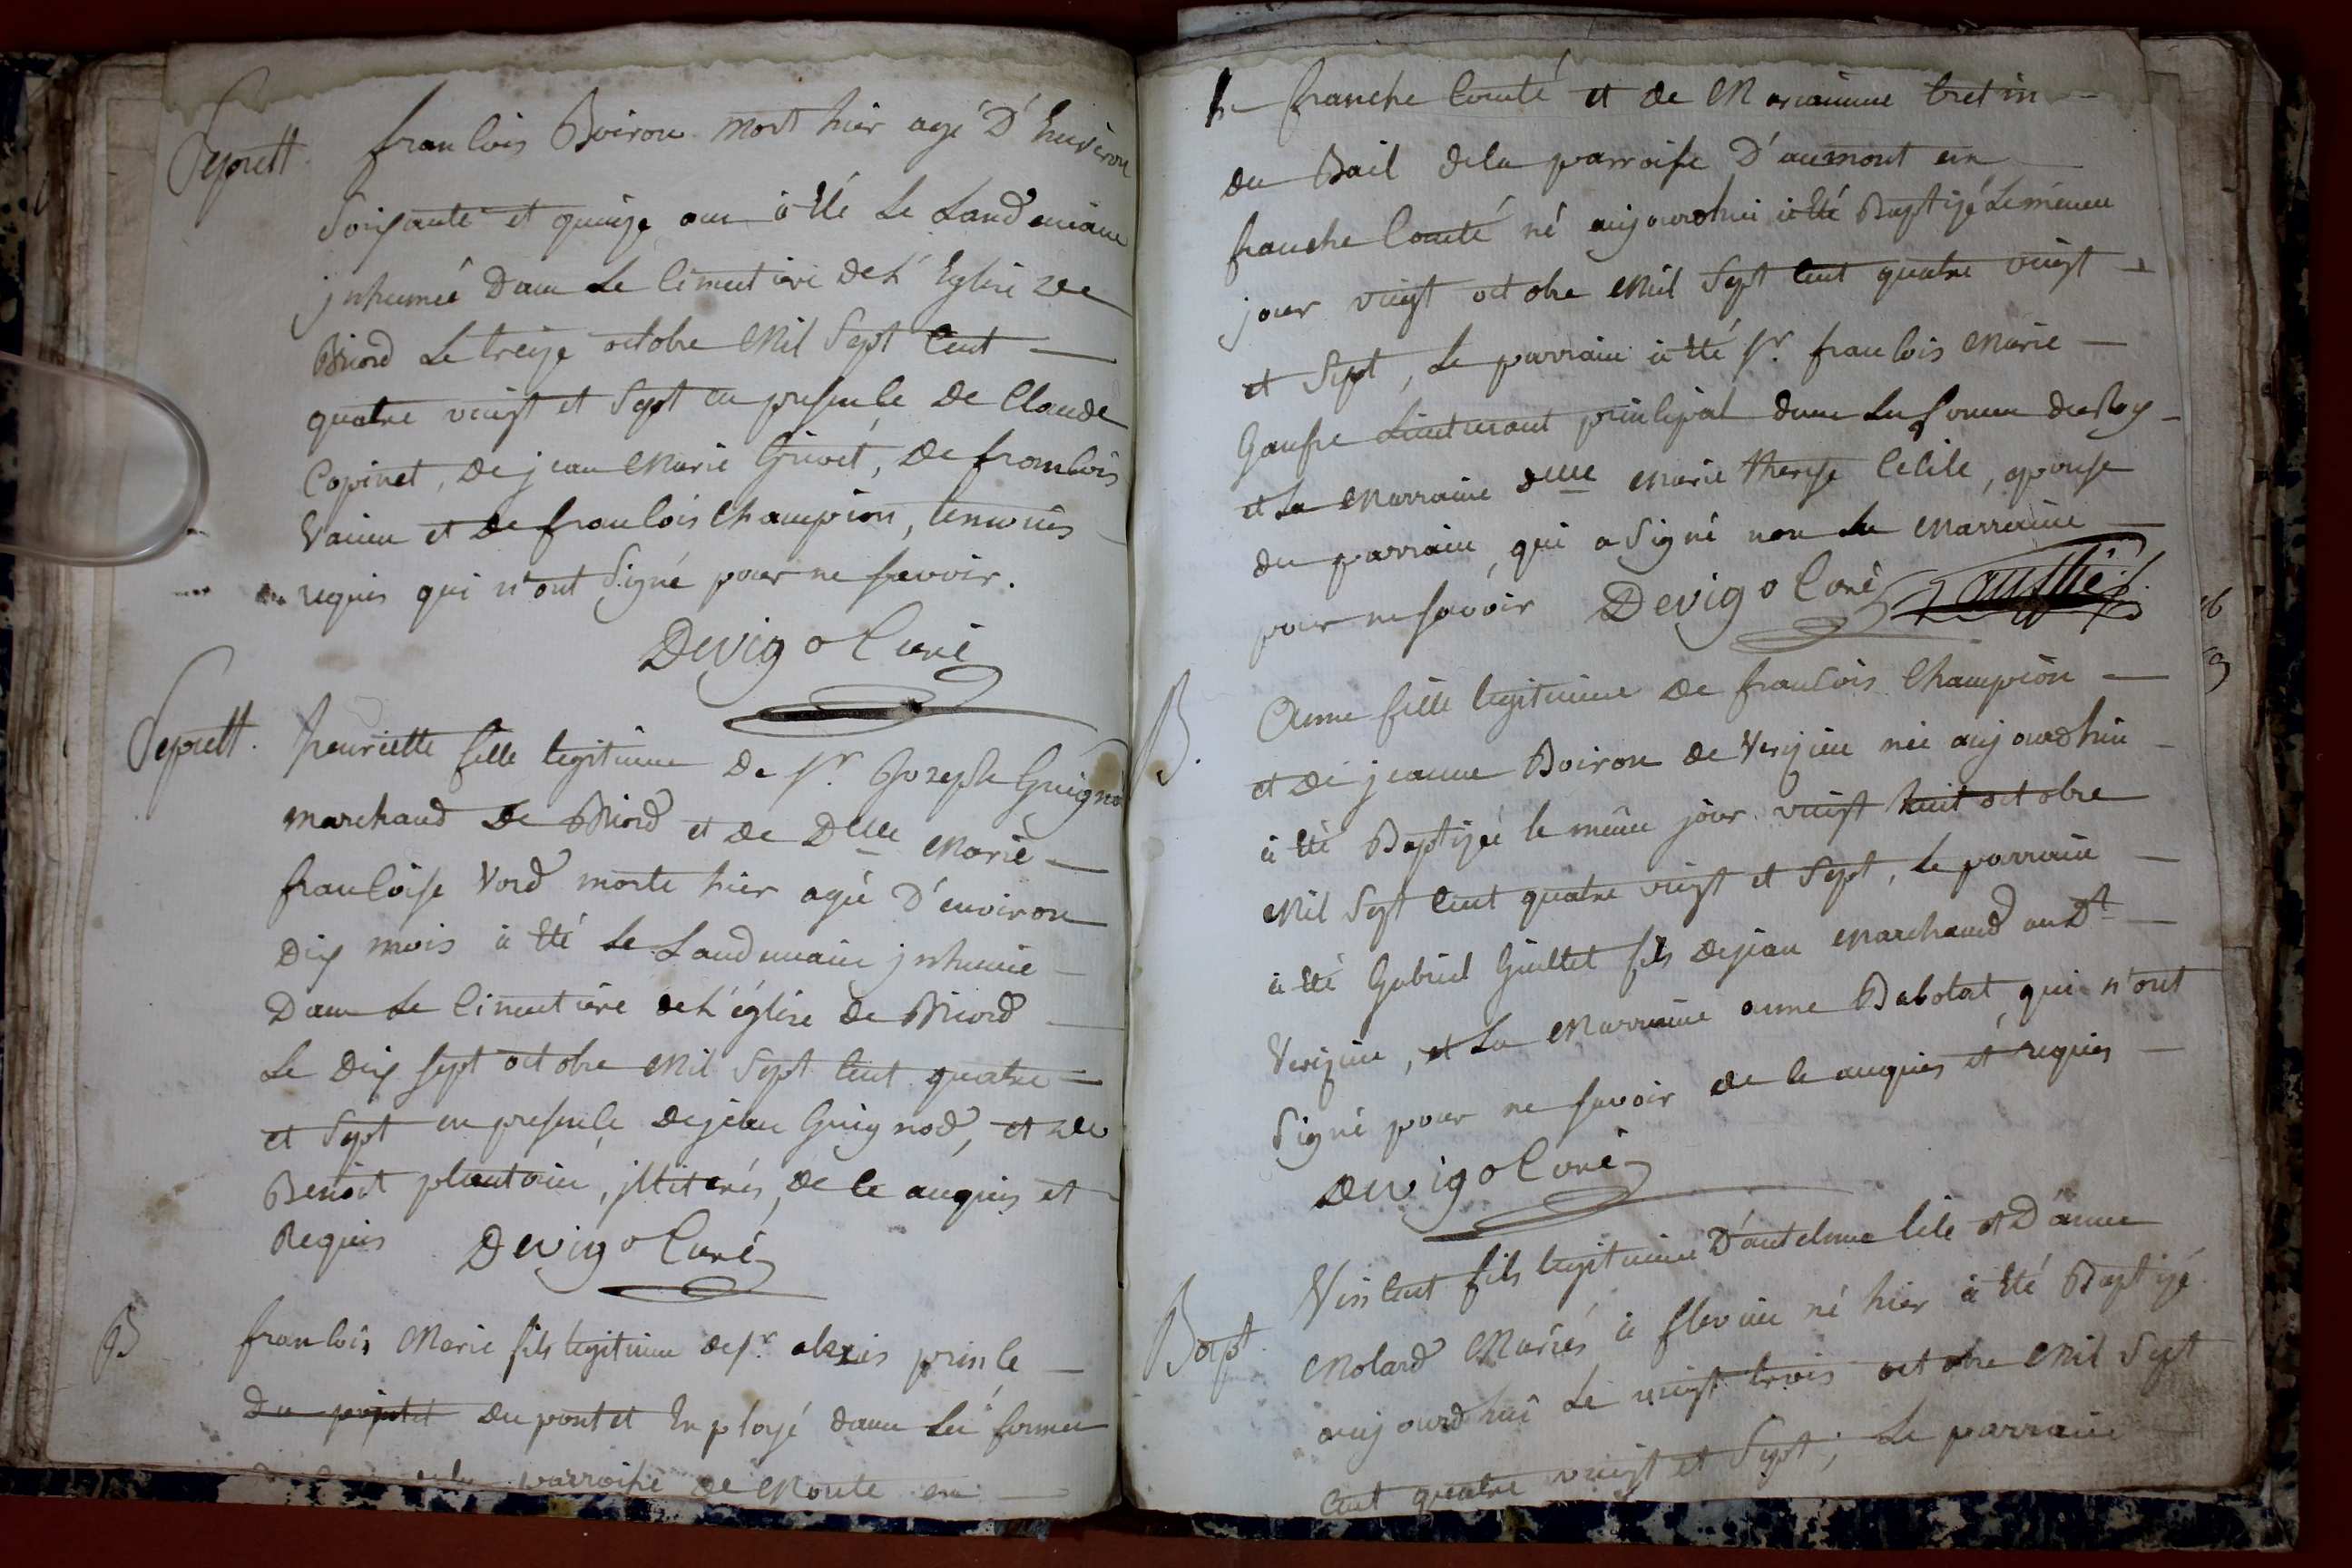 Sepult. franCois Boiron mort hier agé D'Environ
Soixante et quinze ans à Eté Le Landemain
jnhumé Dans Le Cimetiere de L'Eglise de
Briord Le treize octobre Mil Sept Cent
quatre vingt et Sept en presence De Claude
Copinet, De jean Marie Grivet, De franCois
et De franCois Champion, temoins
requis qui n'ont Signé pour ne scavoir.
Devigo Curé
Sepult. henriette fille legitime De Sr. Joseph Guignod
marchand De Briord et De Dlle Marie
franCoise Vord morte hier agée D'environ
Dix mois à Eté Le Landemain jnhumée
Dans Le Cimetiere de L'église De Briord
Le Dix sept octobre Mil Sept Cent quatre
et Sept en presence De jean Guignod, et De
Benoit plantain, jllitérés, de ce anquis et
Requis Devigo Curé
B franCois Marie fils legitime De Sr. alexis prinCe
Du pontet Du pontet Employé dans Les fermes
parroisse de Monte en
franche Comté et de Marianne bretin
du Bail dela parroisse D'aumont en
franche Comté né aujourdhui à Eté Baptizé Le méme
jour vingt octobre Mil Sept Cent quatre vingt
et Sept, Le parrain à Eté Sr. franCois Marie
Gaufre Lieutenant prinCipal dans Les fermes du Roy
et La Marraine Dlle Marie therese CeCile, epouse
du parrain, qui a Signé non La Marraine
pour ne savoir Devigo Curé
B. Anne fille legitime De franCois Champion
et De jeanne Boiron de Verizieu née aujourdhui
à Eté Baptizée le même jour vingt huit octobre
Mil Sept Cent quatre vingt et Sept, Le parrain
à Eté Gabriel Guillet fils De jean Marchand au Dt
Verizieu, et La Marraine anne Babolat, qui n'ont
Signé pour ne savoir de ce anquis et requis
Devigo Curé
Bapt. VinCent fils legitime D'antelme et D'anne
Molard Mariés à flevieu né hier à Eté Baptizé
aujourdhui Le vingt trois octobre Mil Sept
Cent quatre vingt et Sept; Le parrain